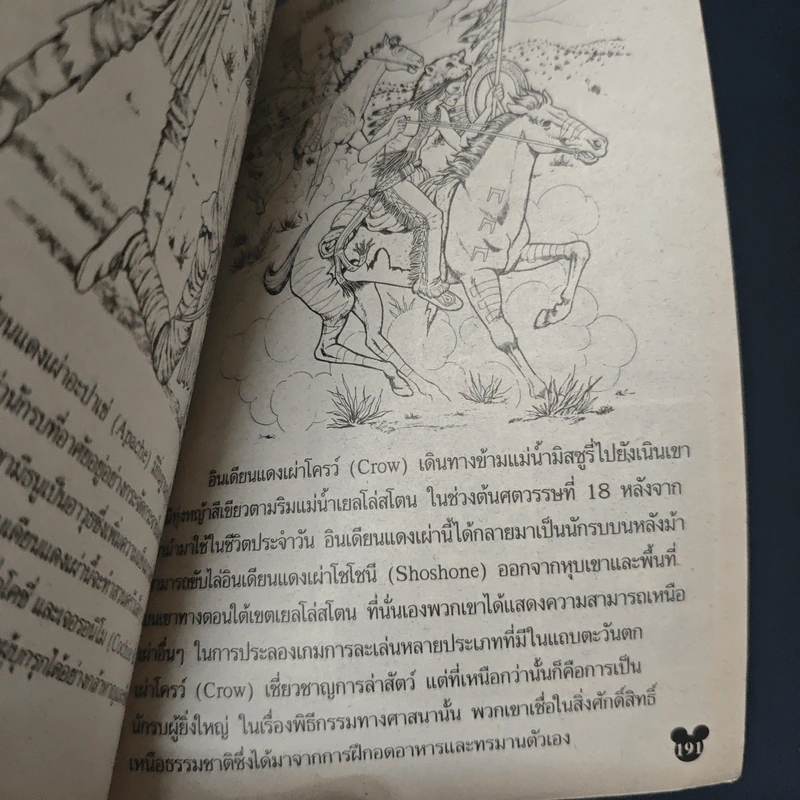 ยนแดงเผ่าอะปาเช่ (Apache)
านักรบที่อาศัยอยู่อย่างกระจัด
ามีธนูเป็นอาวุธซึ่งเพิ่มความ
เดียนแดงเผ่านี้จะทำ
โคชี่ และเจอรอนิโม
อินเดียนแดงเผ่าโครว์ (Crow) เดินทางข้ามแม่น้ำมิสซูรี่ไปยังเนินเขา
มีทุ่งหญ้าสีเขียวตามริมแม่น้ำเยลโล่สโตน ในช่วงต้นศตวรรษที่ 18 หลังจาก
นำมาใช้ในชีวิตประจำวัน อินเดียนแดงเผ่านี้ได้กลายมาเป็นนักรบบนหลังม้า
ามารถขับไล่อินเดียนแดงเผ่าโชโชนี (Shoshone) ออกจากหุบเขาและพื้นที่
นเขาทางตอนใต้เขตเยลโล่สโตน ที่นั่นเองพวกเขาได้แสดงความสามารถเหนือ
เผ่าอื่นๆ ในการประลองเกมการละเล่นหลายประเภทที่มีในแถบตะวันตก
เผ่าโครว์ (Crow) เชี่ยวชาญการล่าสัตว์ แต่ที่เหนือกว่านั้นก็คือการเป็น
นักรบผู้ยิ่งใหญ่ ในเรื่องพิธีกรรมทางศาสนานั้น พวกเขาเชื่อในสิ่งศักดิ์สิทธิ์
เหนือธรรมชาติซึ่งได้มาจากการฝึกอดอาหารและทรมานตัวเอง
191